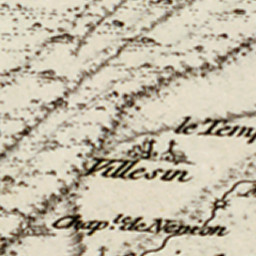 le Temp
Villesin
Chap.le de Nepion